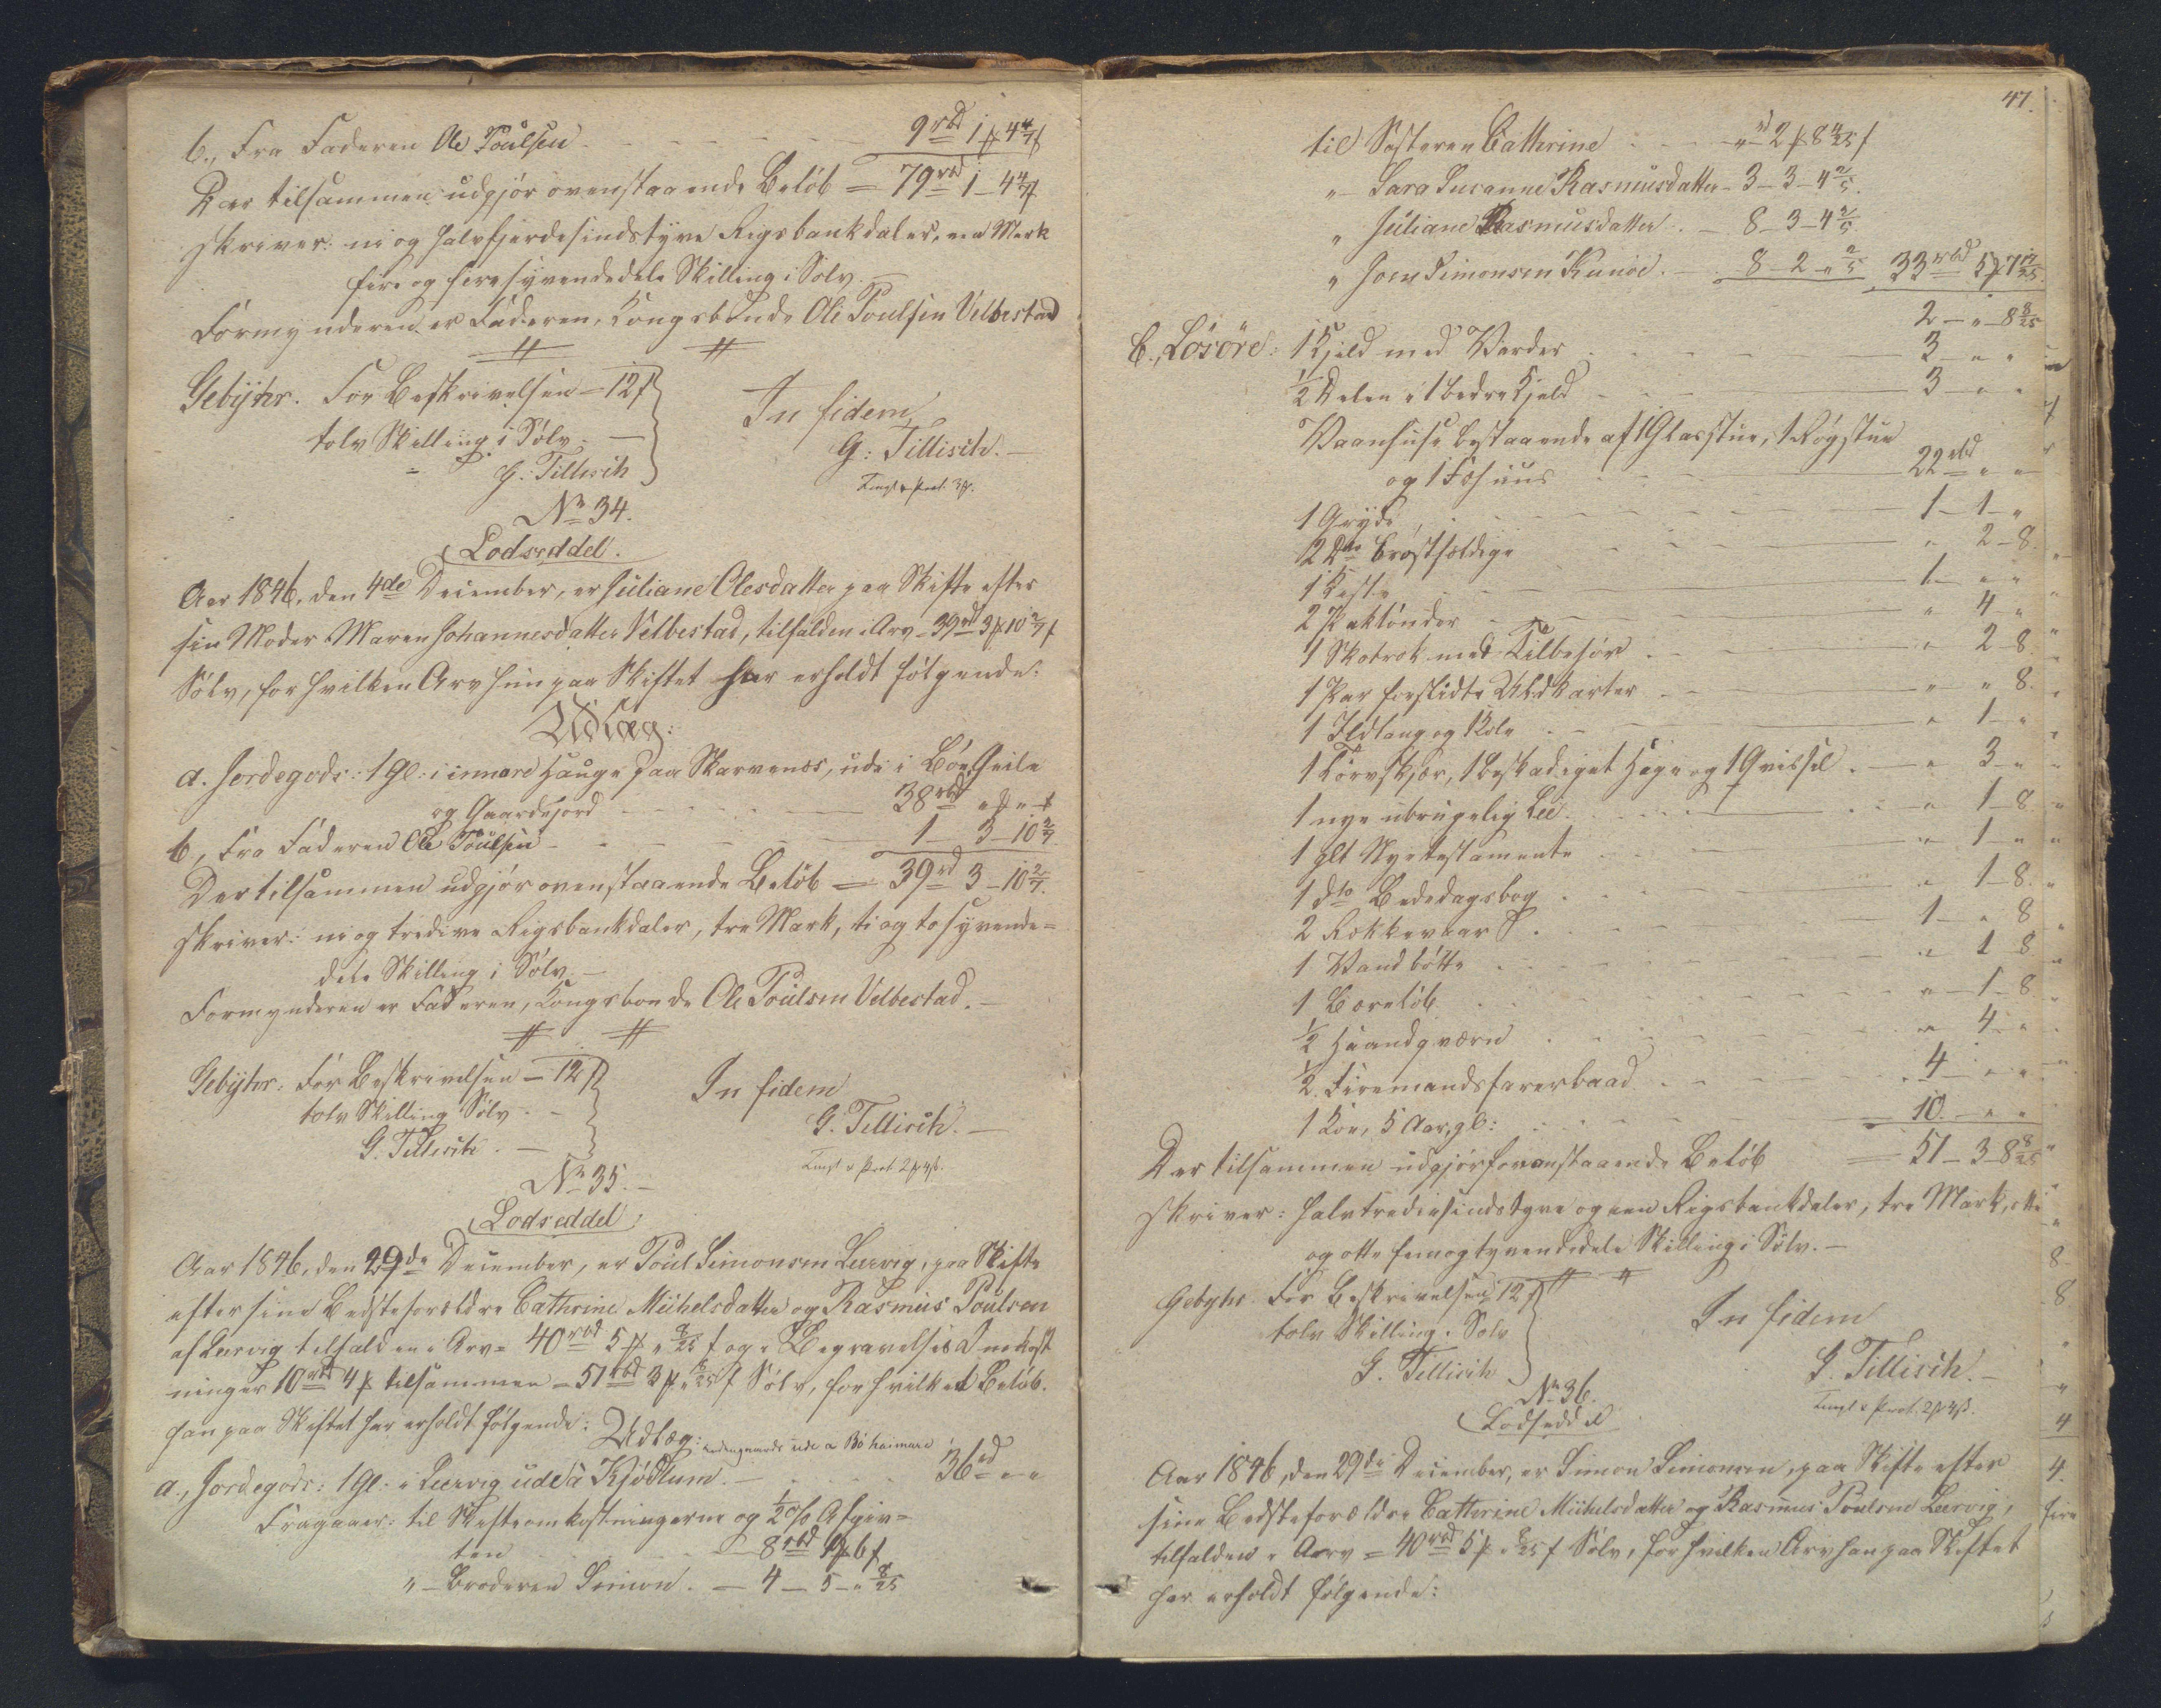 b., Fra Faderen Ole Poulsen - - - 9 rbd 1 ₻ 4 4/7 ß
Der tilsammen udgjør ovenstaaende Beløb = 79 rbd 1 - 4 4/7
skriver: ni og halvfjerdesindstyve Rigsbankdaler, een Mark
fire og fire syvendedele Skilling i Sølv. -
Formynderen er Faderen, Kongsbonde Ole Poulsen Velbestad
Gebyhr. For Beskrivelsen - 12 ß
tolv Skilling i Sølv. -
G: Tillisch
In fidem
G: Tillisch. -
No 34.
Lodseddel.
Aar 1846, den 4de December, er Juliane Olesdatter paa Skifte efter
sin Moder Maren Johannesdatter Velbestad, tilfalden i Arv = 39 rbd 3 ₻ 10 2/7 ß
Sølv, for hvilken Arv hun paa Skiftet har erholdt følgende:
Udlæg:
a. Jordegods: 1 Gl: i innare Hauge paa Skarvenes, ude i Bøe, Heile
og Gaardsjord - - - 38 rbd " ₻ " ß
b, Fra Faderen Ole Poulsen - - - 1 - 3 - 10 2/7
Der tilsammen udgjør ovenstaaende Beløb = 39 rd 3 - 10 2/7.
skriver: ni og tredive Rigsbankdaler, tre Mark, ti og to syvende=
dele Skilling i Sølv. -
Formynderen er Faderen, Kongsbonde Ole Poulsen Velbestad. -
Gebyhr: For Beskrivelsen - 12 ß
tolv Skilling Sølv -
G. Tillisch. -
In fidem
G. Tillisch. -
No 35. -
Lodseddel
Aar 1846, den 29de December, er Poul Simonsen Leervig, paa Skifte
efter sine Bedsteforældre Cathrine Michelsdatter og Rasmus Poulsen
af Leervig tilfalden i Arv = 40 rbd 5 ₻ " 8/25 ß og i Begravelses Omkost
ninger 10 rbd 4 ₻ tilsammen = 51 rbd 3 ₻ " 8/25 ß Sølv, for hvilket Beløb
han paa Skiftet har erholdt følgende: Udlæg:
ude a Bø haimare
a., Jordegods: 1 Gl: i Leervig udeâ Kjødlum. - - - 36 rd " "
Fragaaer: til Skifteomkostningerne og 1/2 % Afgiv=
ten - - - 8 rbd 1 ₻ 6 ß
" - Broderen Simon. - 4 - 5 - " 8/25
47.
til Søsteren Cathrine - - - " rd 2 ₻ 8 4/25 ß
" - Sara Susanne Rasmusdatter - 3 - 3 - 4 2/5.
" Juliane Rasmusdatter. - 8 - 3 - 4 2/5
" Joen Simonsen Kunøe. - 8 - 2 - " 2/5 33 rbd 5 ₻ 7 17/25
2 - " - 8 8/25
b., Løsøre: 1 Kjeld med Verder - - - 3 - " "
1/2 Delen i 1 bedre Kjeld - - - 3 - " "
Vaanhuse bestaaende af 1 Glasstue, 1 Røgstue
og 1 Fæhuus - - - 22 rbd " "
1 Gryde - - - 1 - 1 - "
2 Dto brøstfældige - - - " 2 - 8.
1 Kiste - - - 1 - " "
2 Paktønder - - - " 4 - "
1 Skotrok med Tilbehør - - - " 2 8.
1 Par forslidte Uldkarter - - - " " 8.
1 Ildtang og 1 Kole - - - " 1 - "
1 Tørvskjær, 1 beskadiget Hage og 1 Qvissel. - " 3 - "
1 nye ubrugelig Lee. - - - " 1 - 8.
1 glt Nyetestamente - - - " 1 - "
1 dto Bededagsbog - - - " 1 - 8.
2 Rokkevaar - - - 1 - " 8
1 Vandbøtte - - - " 1 8
1 Bereløb - - - " - 1 - 8
1/2 Haandqværn - - - " 4 - "
1/2 Firemandsfarerbaad - - - 4 - " "
1 Koe, 5 Aar gl: - - - 10. - " "
Der tilsammen udgjør foranstaaende Beløb = 51 - 3 - 8 8/25
skriver: halvtredsindstyve og een Rigsbankdaler, tre Mark, otte
og otte femogtyvendedele Skilling i Sølv. -
Gebyhr. For Beskrivelsen 12 ß
tolv Skilling i Sølv
G. Tillisch
In fidem
G. Tillisch. -
No 36.
Lodseddel
Aar 1846, den 29de December, er Simon Simonsen, paa Skifte efter
sine Bedsteforældre Cathrine Michelsdatter og Rasmus Poulsen Leervig,
tilfalden i Arv = 40 rbd 5 ₻ " 8/25 ß Sølv, for hvilken Arv han paa Skiftet
har erholdt følgende: